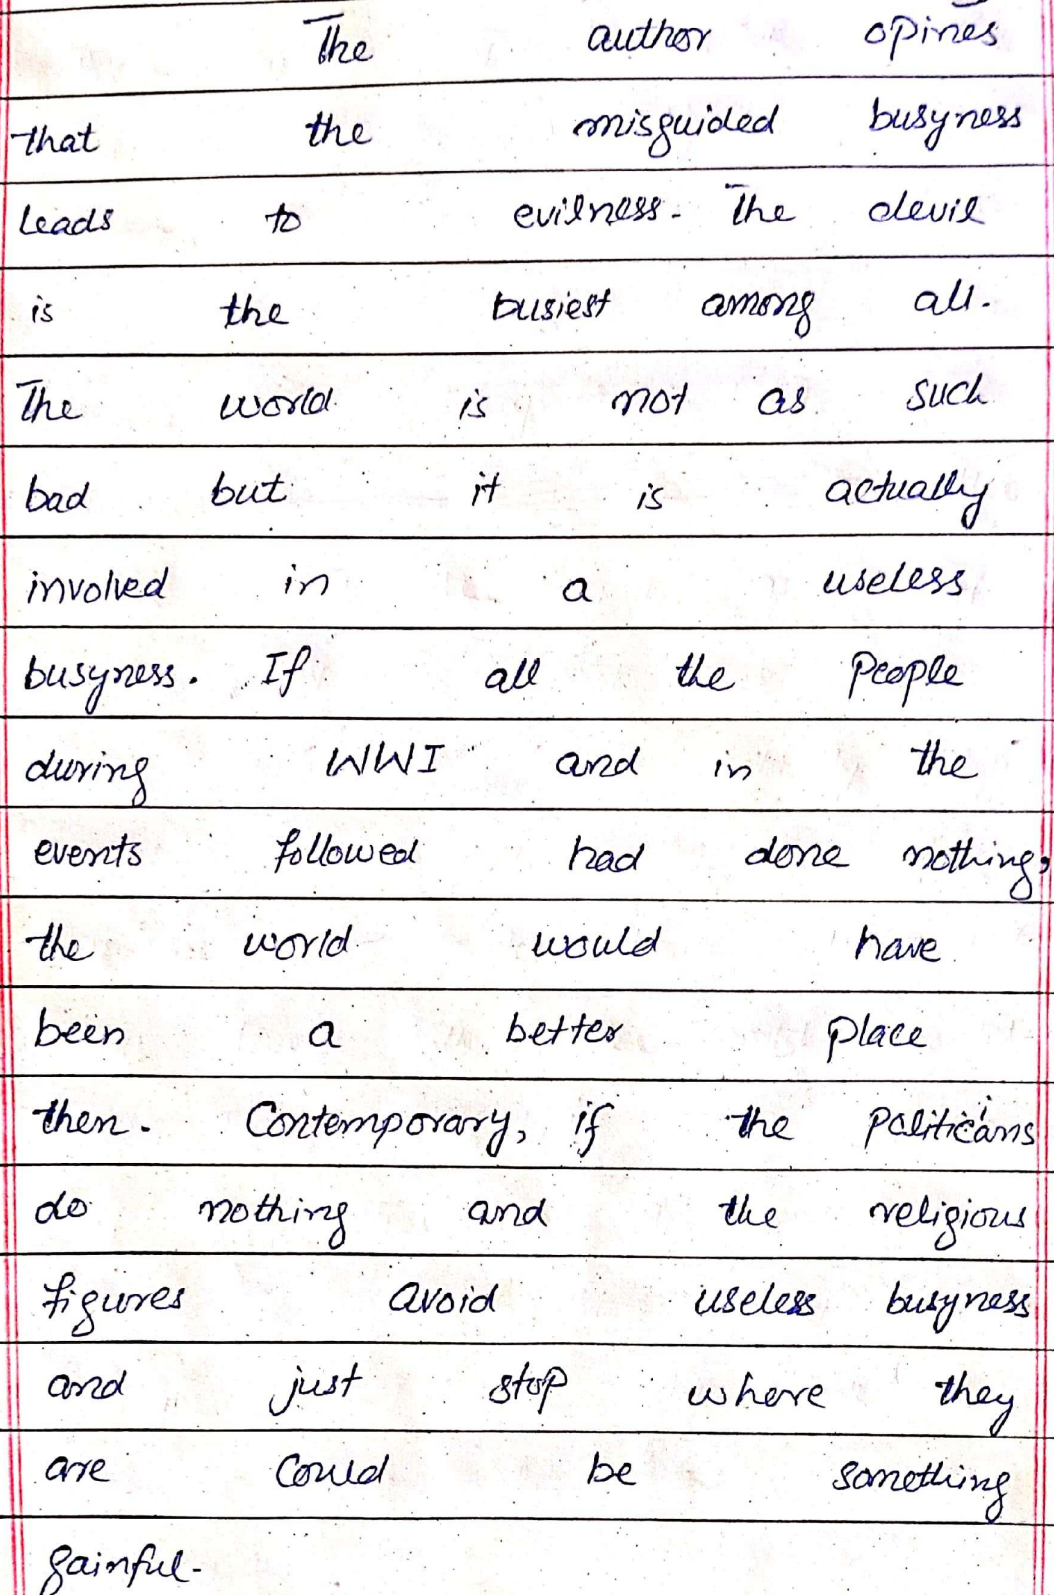 The author opines
that the misguided busyness
leads to evilness. The devil
is the busiest among all.
The world is not as such
bad but it is actually
involved in a useless
busyness. If all the People
during WWI and in the
events followed had done nothing,
the world would have
been a better place
then. Contemporary, if the Politicians
do nothing and the religious
figures avoid useless busyness
and just stop where they
are could be something
gainful.